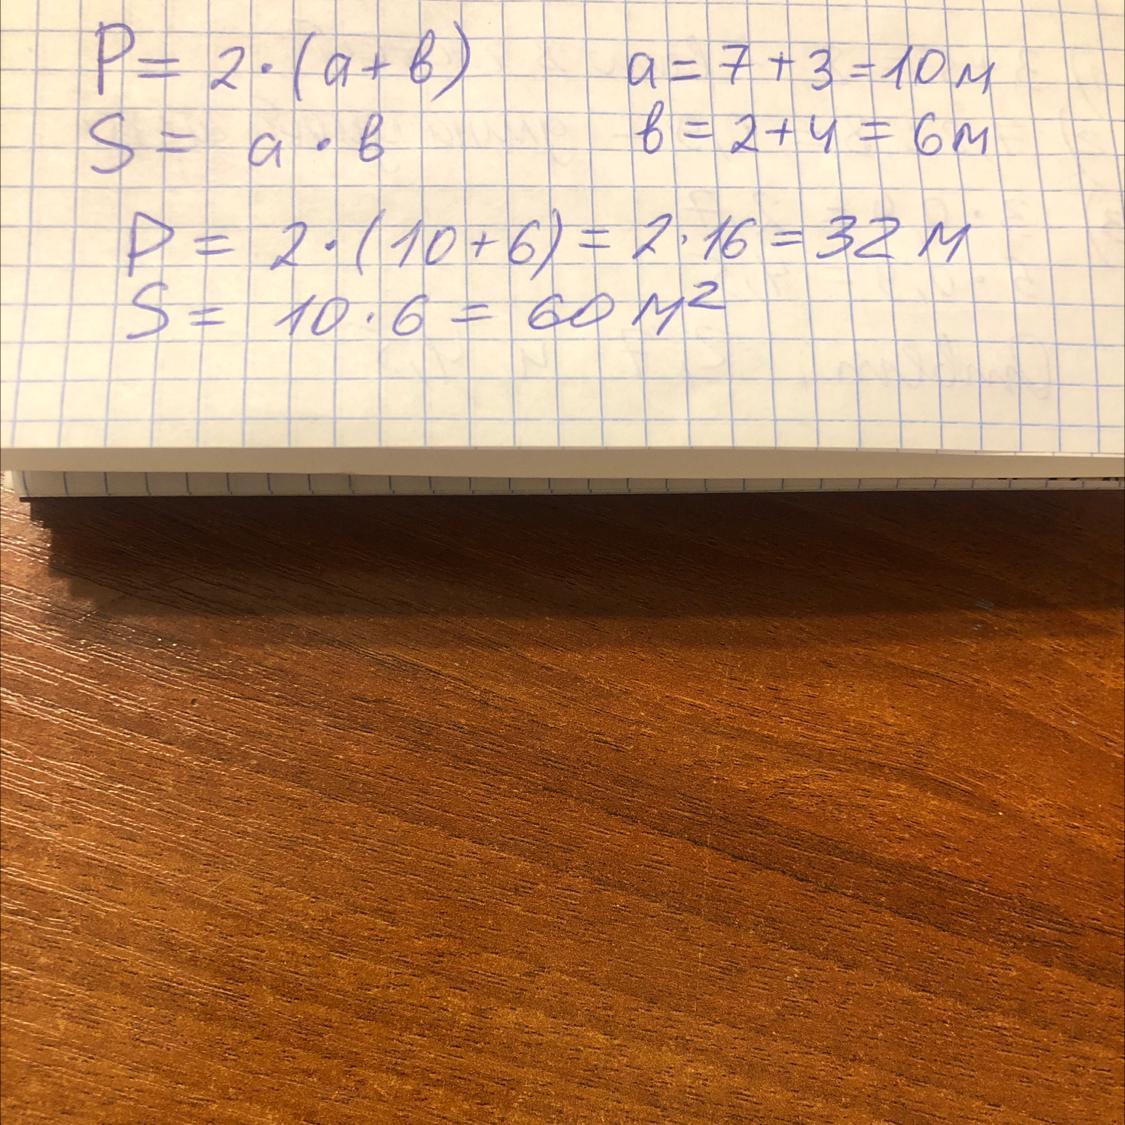 P = 2·(a+в) a = 7+3=10м
S = a·в в = 2+4 = 6м
P = 2·(10+6) = 2·16 = 32 м
S = 10·6 = 60 м²